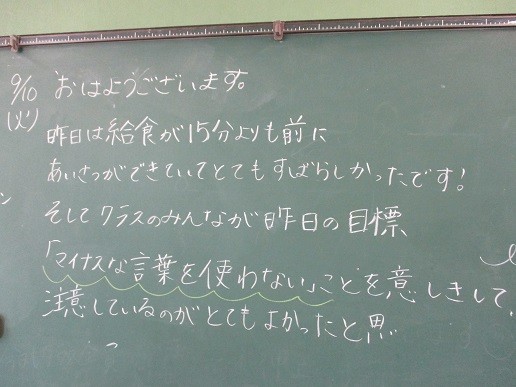 9/10 おはようございます。
(火)
昨日は給食が15分よりも前に
あいさつができていてとてもすばらしかったです!
そしてクラスのみんなが昨日の目標
「マイナスな言葉を使わない」ことを意しきして、
注意しているのがとてもよかったと思